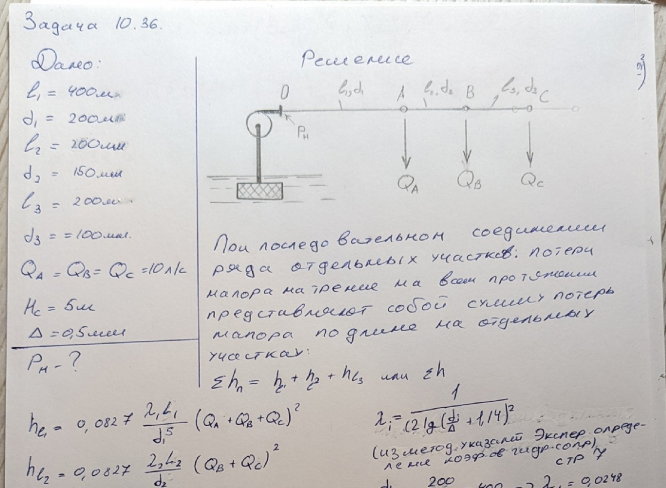 Задача 10.36.
Дано:
l₁ = 400м
d₁ = 200мм
l₂ = 200мм
d₂ = 150мм
l₃ = 200м
d₃ = =100мм.
Q_A = Q_B = Q_C = 10 л/с
H_C = 5м
Δ = 0,5мм
P_н - ?
Решение
0 l₁,d₁ A l₂,d₂ B l₃,d₃ C
P_н
Q_A Q_B Q_C
При последовательном соединении
ряда отдельных участков: потери
напора на трение на всем протяжении
представляют собой сумму потерь
напора по длине на отдельных
участках:
Σh_п = h_l₁ + h_l₂ + h_l₃ или Σh
h_l₁ = 0,0827 λ₁l₁/d₁⁵ (Q_A+Q_B+Q_C)²
λᵢ = 1/(2lg(dᵢ/Δ + 1,14)²
(из метод. указаний Экспер. опреде-
ление коэф-ов гидр-сопр)
стр 7
h_l₂ = 0,0827 λ₂l₂/d₂ (Q_B + Q_C)²
200
λ₁ = 0,0248